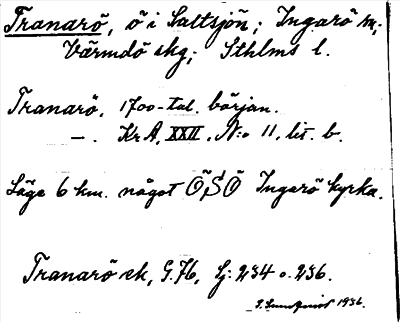 Tranarö, ö i Saltsjön; Ingarö sn;
Värmdö skg; Sthlms l.
Tranarö, 1700-tal. början.
—. Kr A, XXII, N:o 11, lit. b.
Läge 6 km. något ÖSÖ Ingarö kyrka.
Tranarö ek, G. 76, Lj: 234 o. 236.
Lundqvist 1936.